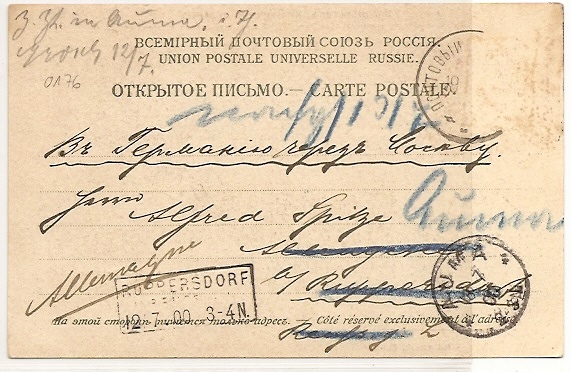 z. Zt. in Auma, i. Th.
12/7.
0176
ВСЕМІРНЫЙ ПОЧТОВЫЙ СОЮЗЪ РОССІЯ.
UNION POSTALE UNIVERSELLE RUSSIE.
ПОЧТОВЫЙ
ОТКРЫТОЕ ПИСЬМО.—CARTE POSTALE.
Въ Германію черезъ Москву.
Herrn
Alfred Spitze
Auma
Allemagne
b/ Ruppersdorf
AUMA
RUPPERSDORF
12.7.00. 3-4N.
На этой сторонѣ пишется только адресъ.—Côté réservé exclusivement à l'adresse.
Reuss